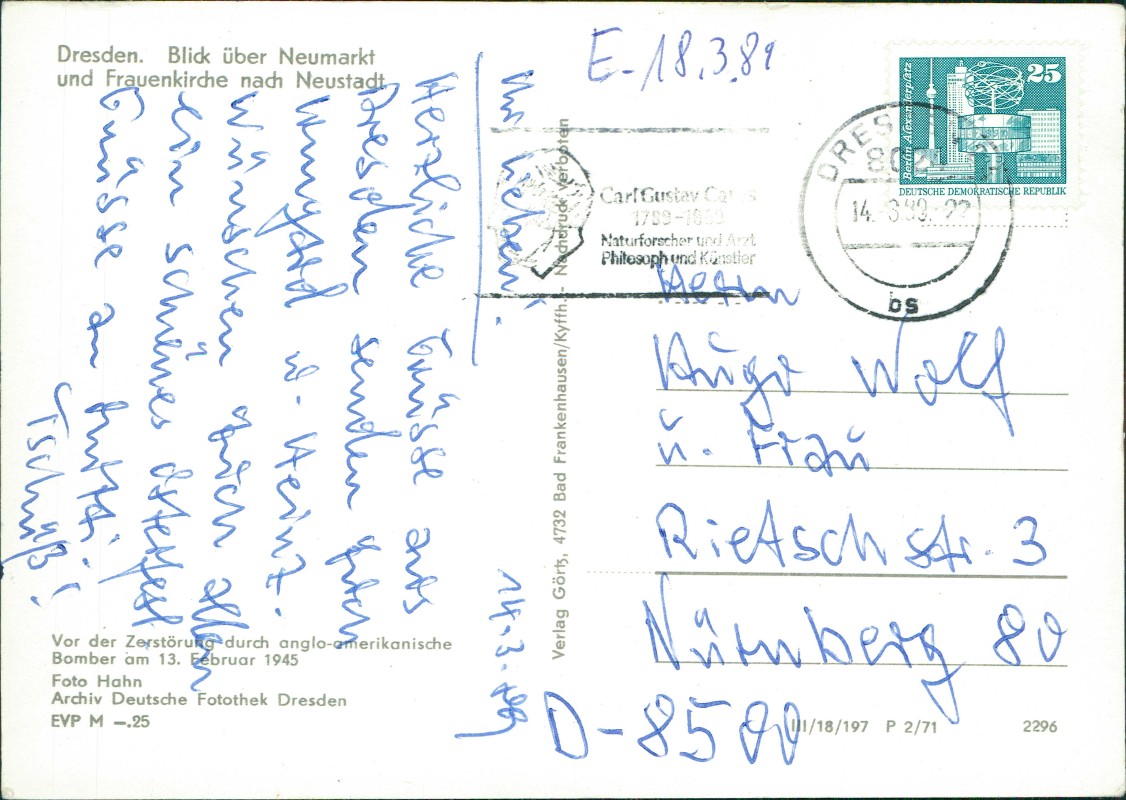 Dresden. Blick über Neumarkt
und Frauenkirche nach Neustadt
E-18.3.89
25
Berlin-Alexanderplatz
DEUTSCHE DEMOKRATISCHE REPUBLIK
DRES
14.-3.89.-22
bs
Carl Gustav Carus
1789-1869
Naturforscher und Arzt
Philosoph und Künstler
Ihr lieben!
14.3.
Herzliche Grüsse aus
Dresden senden
u. Heinz.
Wünschen allen
ein schönes Osterfest
Grüsse an Mutti!
Tschüß!
Verlag Görtz, 4732 Bad Frankenhausen/Kyffh. - Nachdruck verboten
Herrn
Hugo Wolf
u. Frau
Rietschstr. 3
Nürnberg 80
D-8500
Vor der Zerstörung durch anglo-amerikanische
Bomber am 13. Februar 1945
Foto Hahn
Archiv Deutsche Fotothek Dresden
EVP M —.25
III/18/197 P 2/71
2296